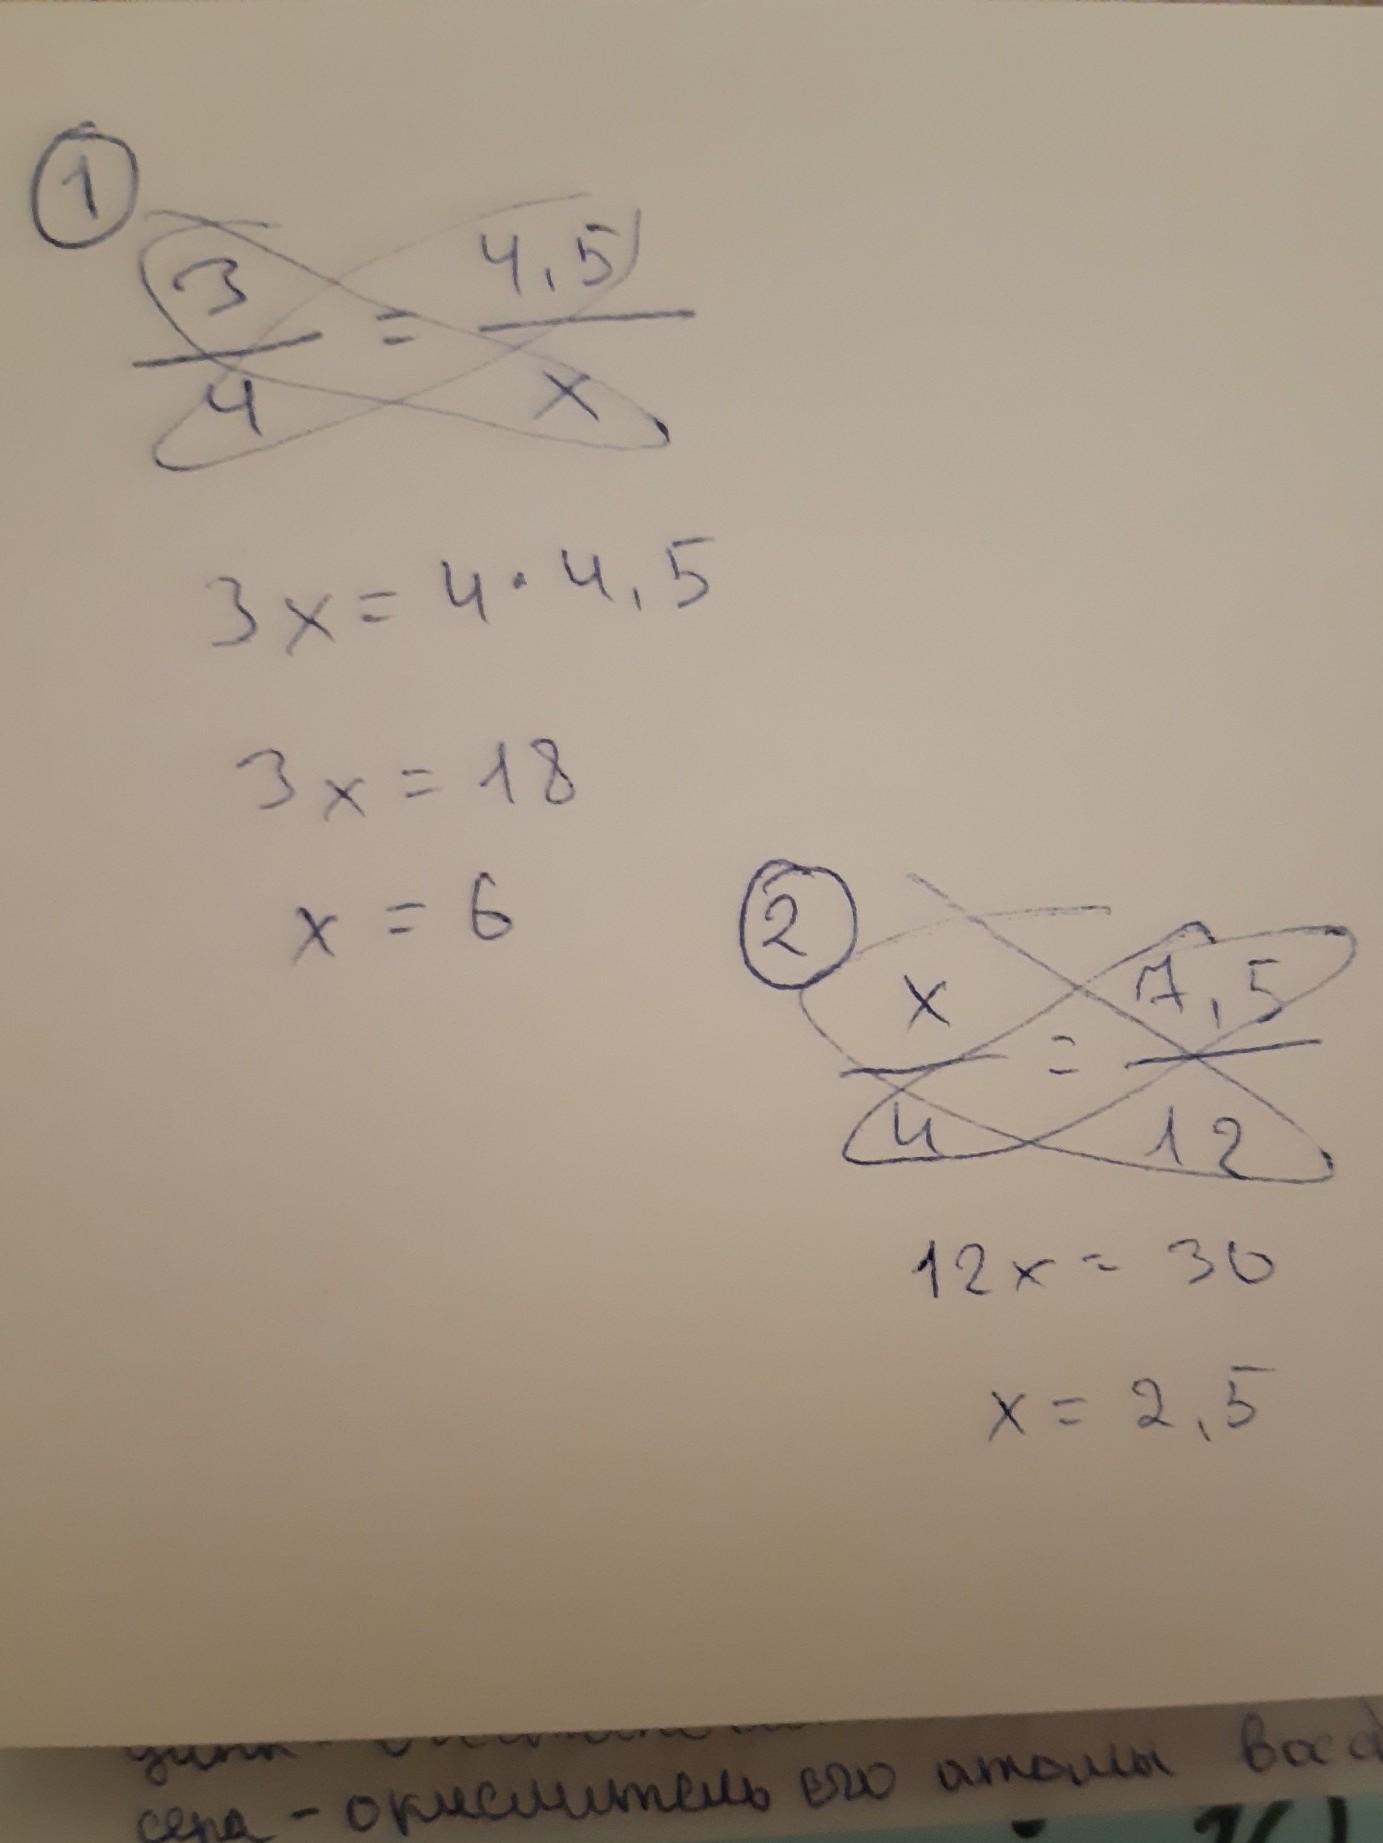 1
3/4 = 4,5/x
3x = 4 · 4,5
3x = 18
x = 6
2
x/4 = 7,5/12
12x = 30
x = 2,5
сера - окислитель его атомы